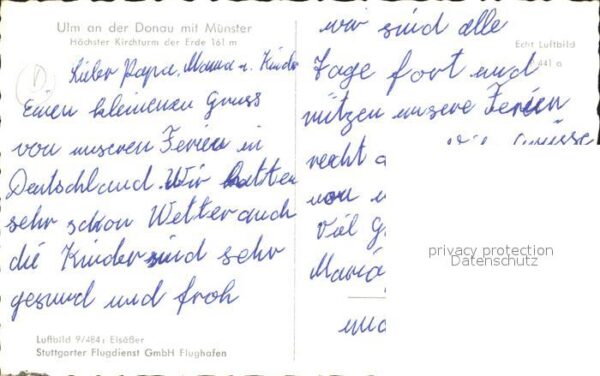 Ulm an der Donau mit Münster
Höchster Kirchturm der Erde 161 m
Lieber Papa, Mama u. Kinder
Einen kleinenen Gruss
von unseren Ferien in
Deutschland. Wir hatten
sehr schon Wetter auch
die Kinder sind sehr
gesund und froh
Luftbild 9/484; Elsäßer
Stuttgarter Flugdienst GmbH Flughafen
wir sind alle
Echt Luftbild
441 a
Tage fort und
nützen unsere Ferien
recht a
von
Viel G
Maria
und
privacy protection
Datenschutz